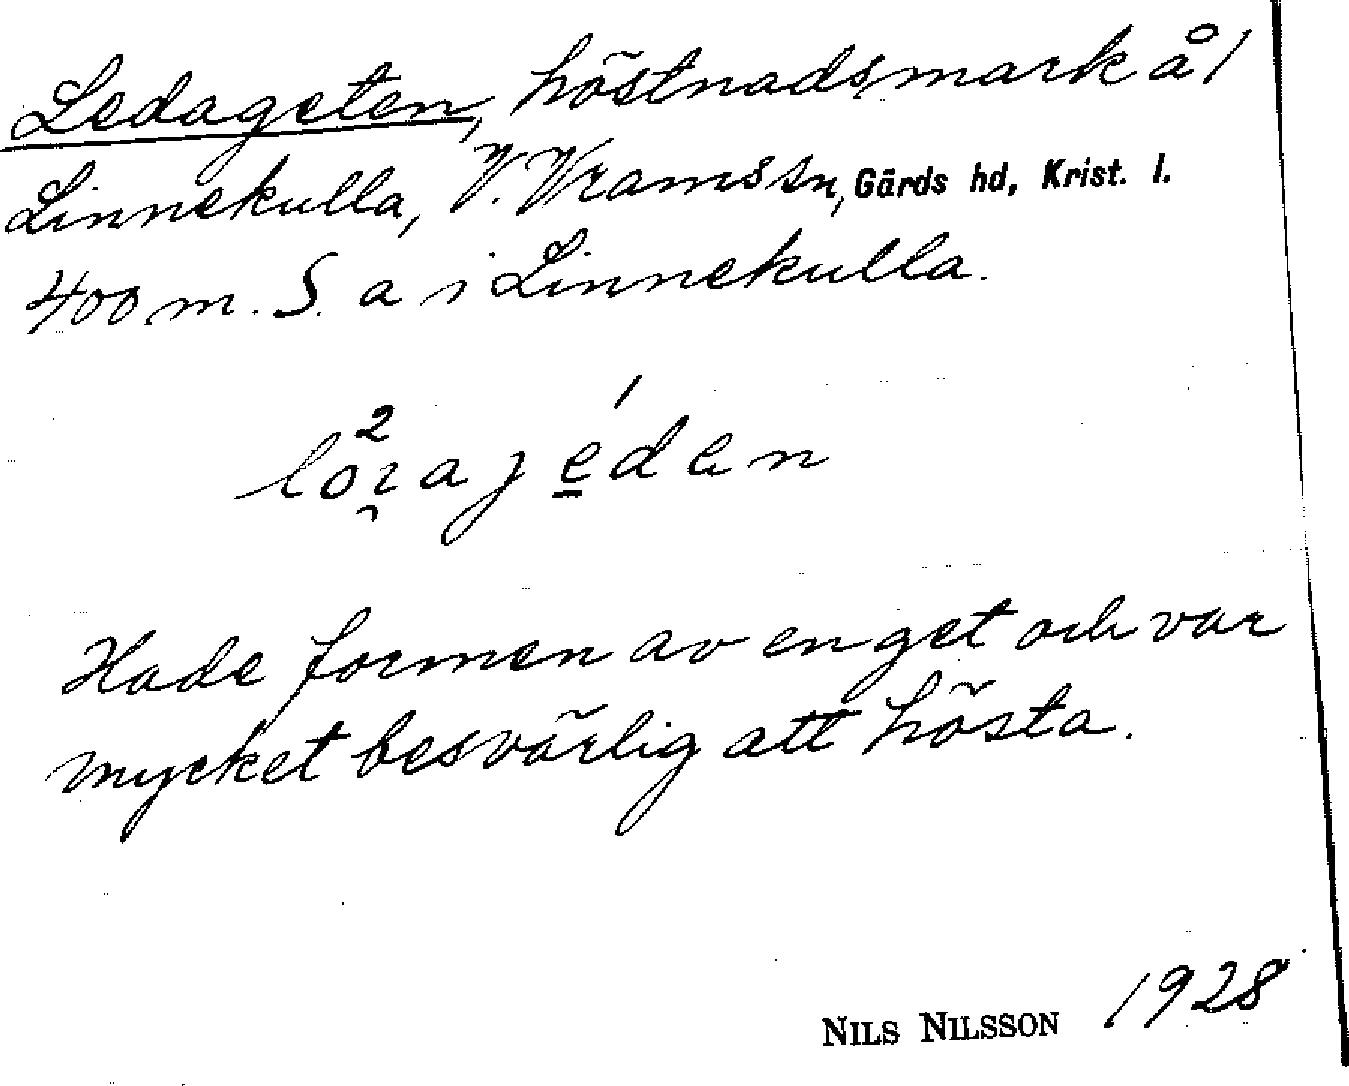 Ledageten, höstnadsmark å 1
Linnekulla, V. Vrams sn, Gärds hd, Krist. l.
400 m. S. a i Linnekulla.
Hade formen av en get och var
mycket besvärlig att hösta.
NILS NILSSON 1928